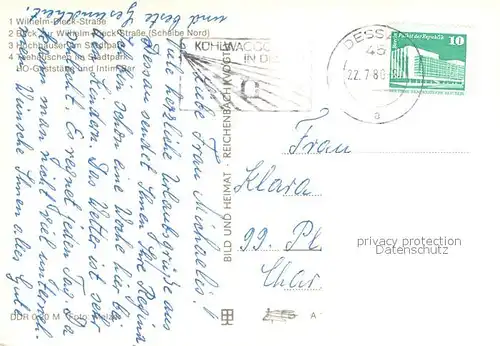 1 Wilhelm-Pieck-Straße
2 Block zur Wilhelm-Pieck-Straße (Scheibe Nord)
3 Hochhäuser im Stadtpark
4 Teehäuschen im Stadtpark
HO-Gaststätte und Intim
Liebe Frau Michaelis!
Viele herzliche Urlaubsgrüße aus
Dessau sendet Ihnen Ihre Regina.
Ich bin schon eine Woche hier bei
den Kindern. Das Wetter ist sehr
schlecht. Es regnet jeden Tag. Da
kann man nicht viel unterneh-
men. Wünsche Ihnen alles Gute
und beste Gesundheit!
DDR 0,20 M Foto:
BILD UND HEIMAT · REICHENBACH VOGTL
KÜHLWAGGO
IN DE
DESSAU
45
22.7.80
a
10
Frau
Klara
99. Pl
Char
privacy protection
Datenschutz
A